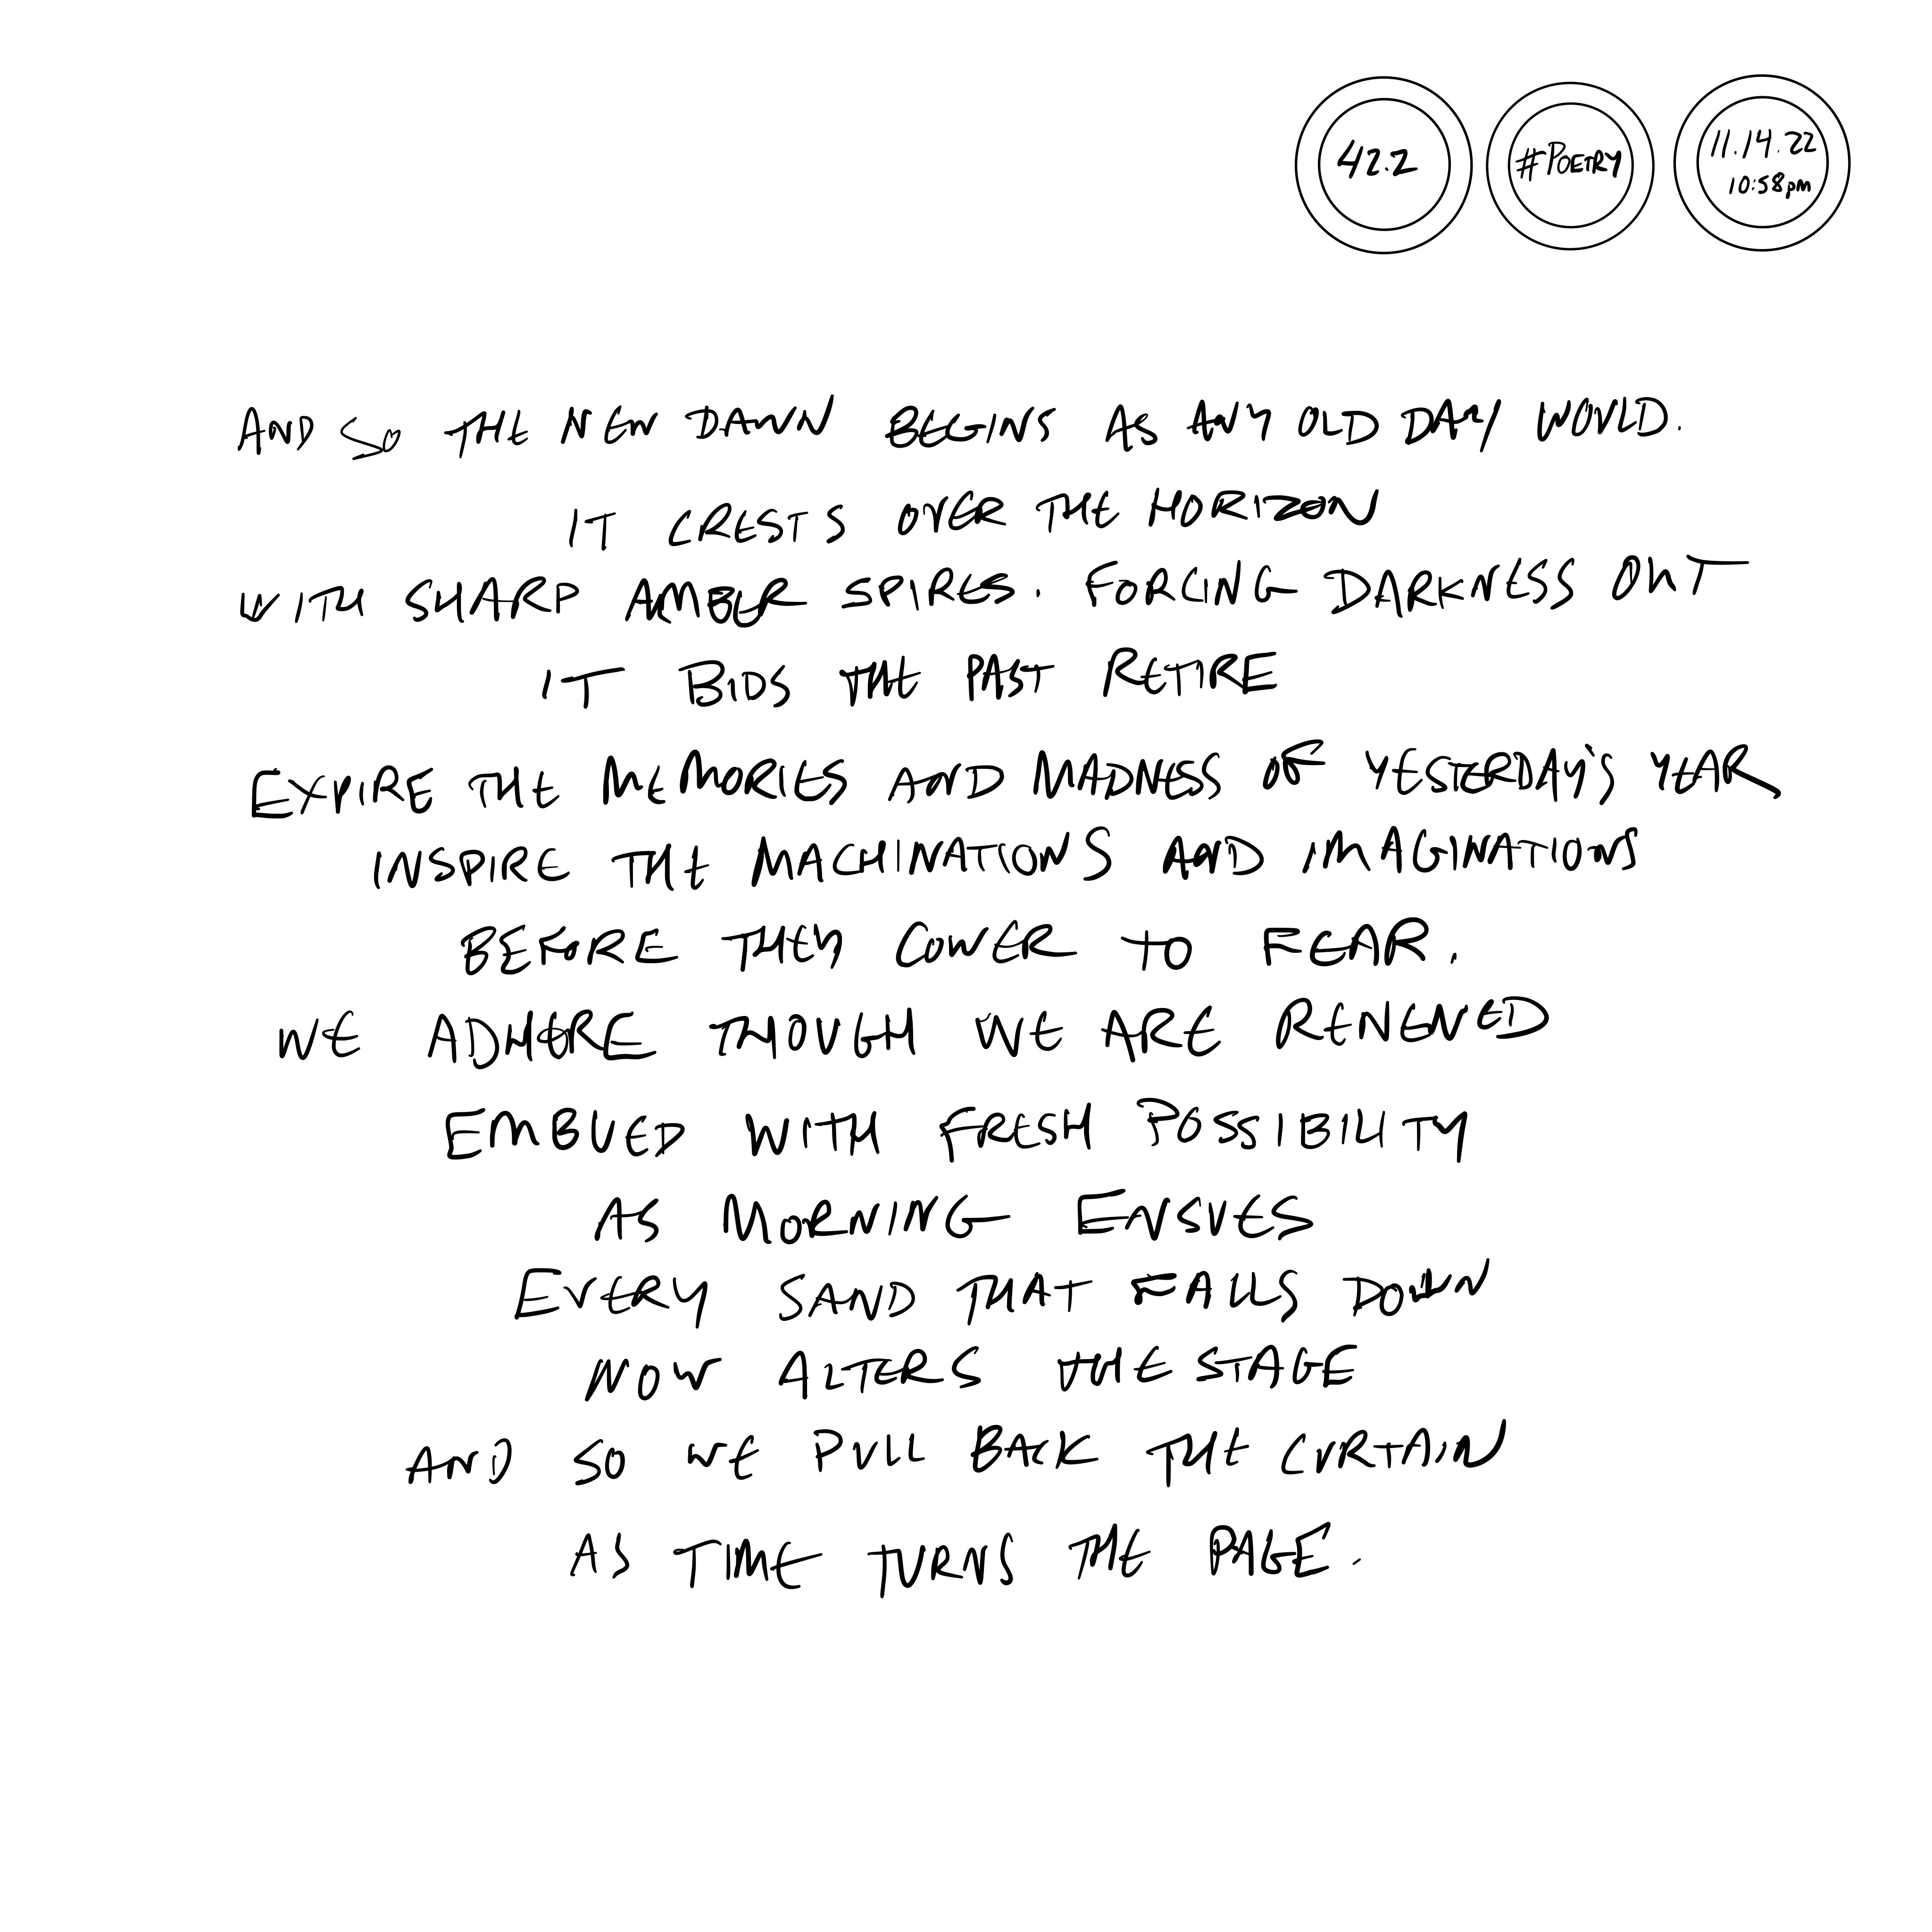 42.2
#POETRY
11.14.22
10:58pm
AND SO THE NEW DAWN BEGINS AS ANY OLD DAY WOULD.
IT CRESTS OVER THE HORIZON
WITH SHARP AMBER SPIRES. FORCING DARKNESS OUT
IT BIDS THE PAST RETIRE
EXPIRE THE MEMORIES AND MADNESS OF YESTERDAY'S YEAR
INSPIRE THE MACHINATIONS AND IMAGINATIONS
BEFORE THEY COWER TO FEAR.
WE ADHERE THOUGH WE ARE RENEWED
EMBUED WITH FRESH POSSIBILITY
AS MORNING ENSUES
EVERY SAND THAT FALLS DOWN
NOW ALTERS THE STAGE
AND SO WE PULL BACK THE CURTAIN
AS TIME TURNS THE PAGE.